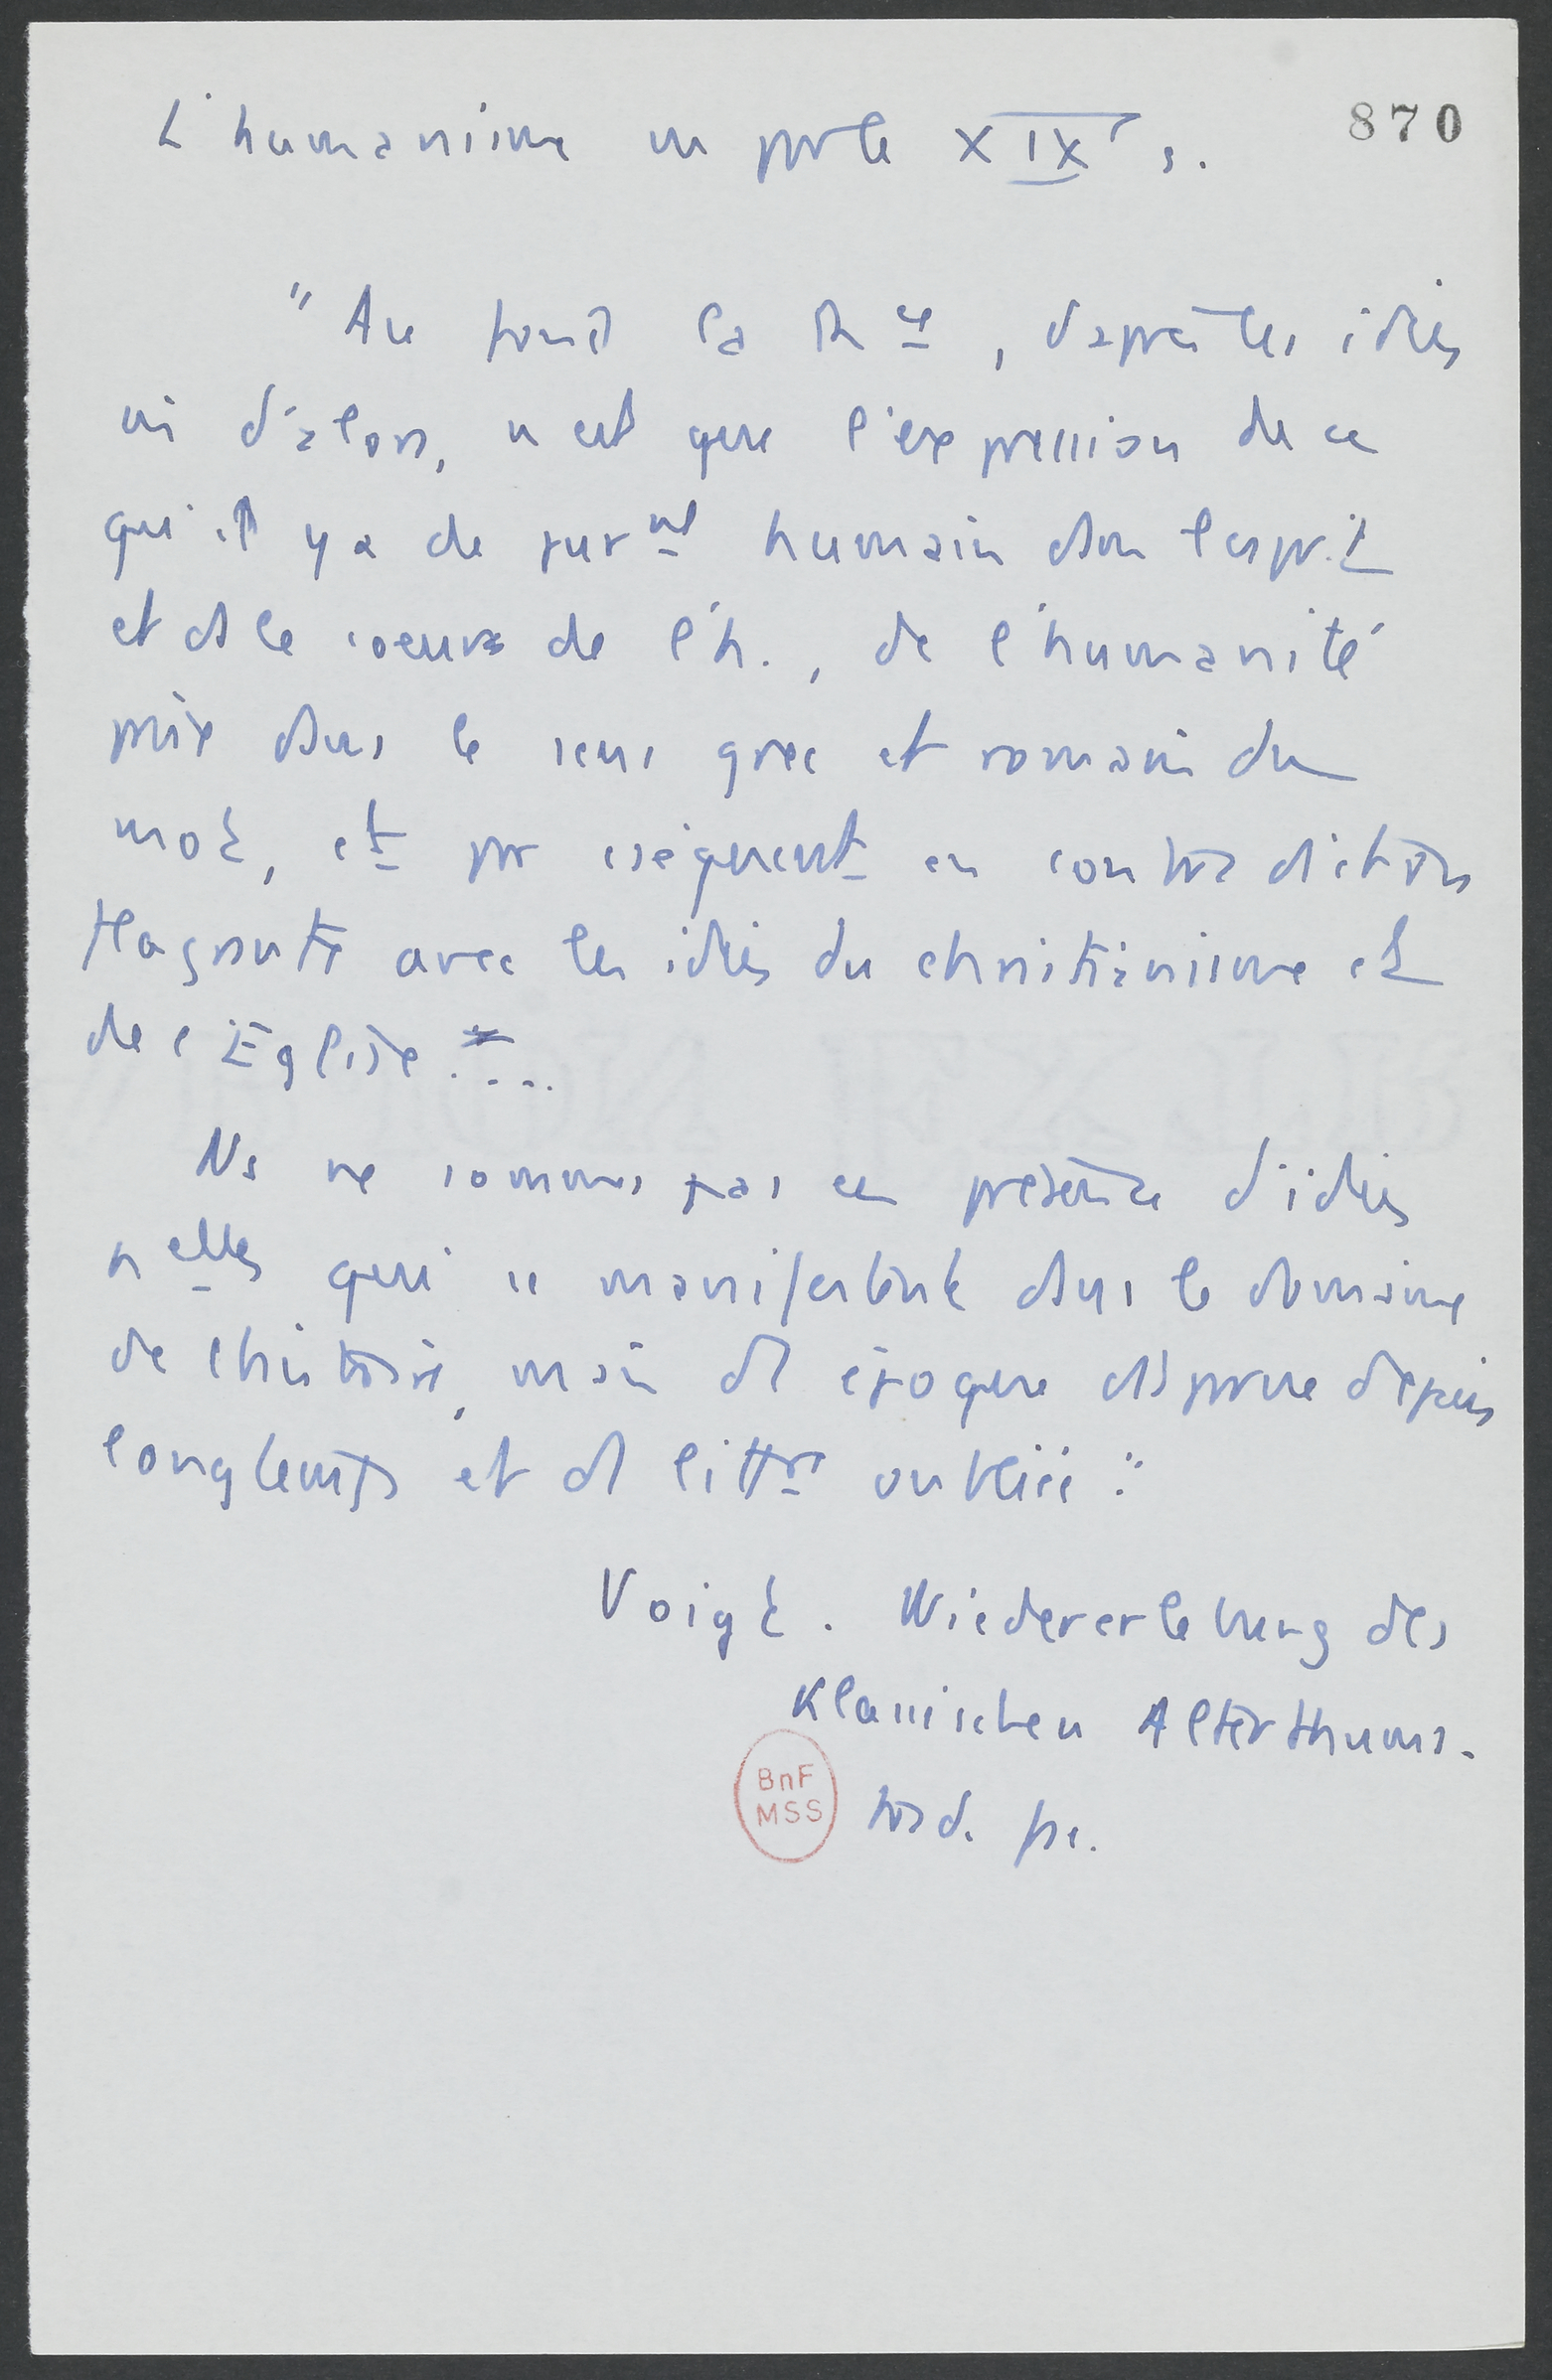 870
L'humanisme vu par le XIXe s.
"Au fond la Rce, d'après les idées
ni d'alors, n'est que l'expression de ce
qu'il y a de purnt humain dans l'esprit
et ds le coeur de l'h., de l'humanité
prise dans le sens grec et romain du
mot, et par cséquent en contradiction
flagrante avec les idées du christianisme et
de l'Église ....
Ns ne sommes pas en présence d'idées
nelles qui se manifestent dans le domaine
de l'histoire, mais d' époque disparue depuis
longtemps et d' littre oubliée."
Voigt. Wiedererlebung des
Klassischen Alterthums.
BnF
MSS
trad. fr.